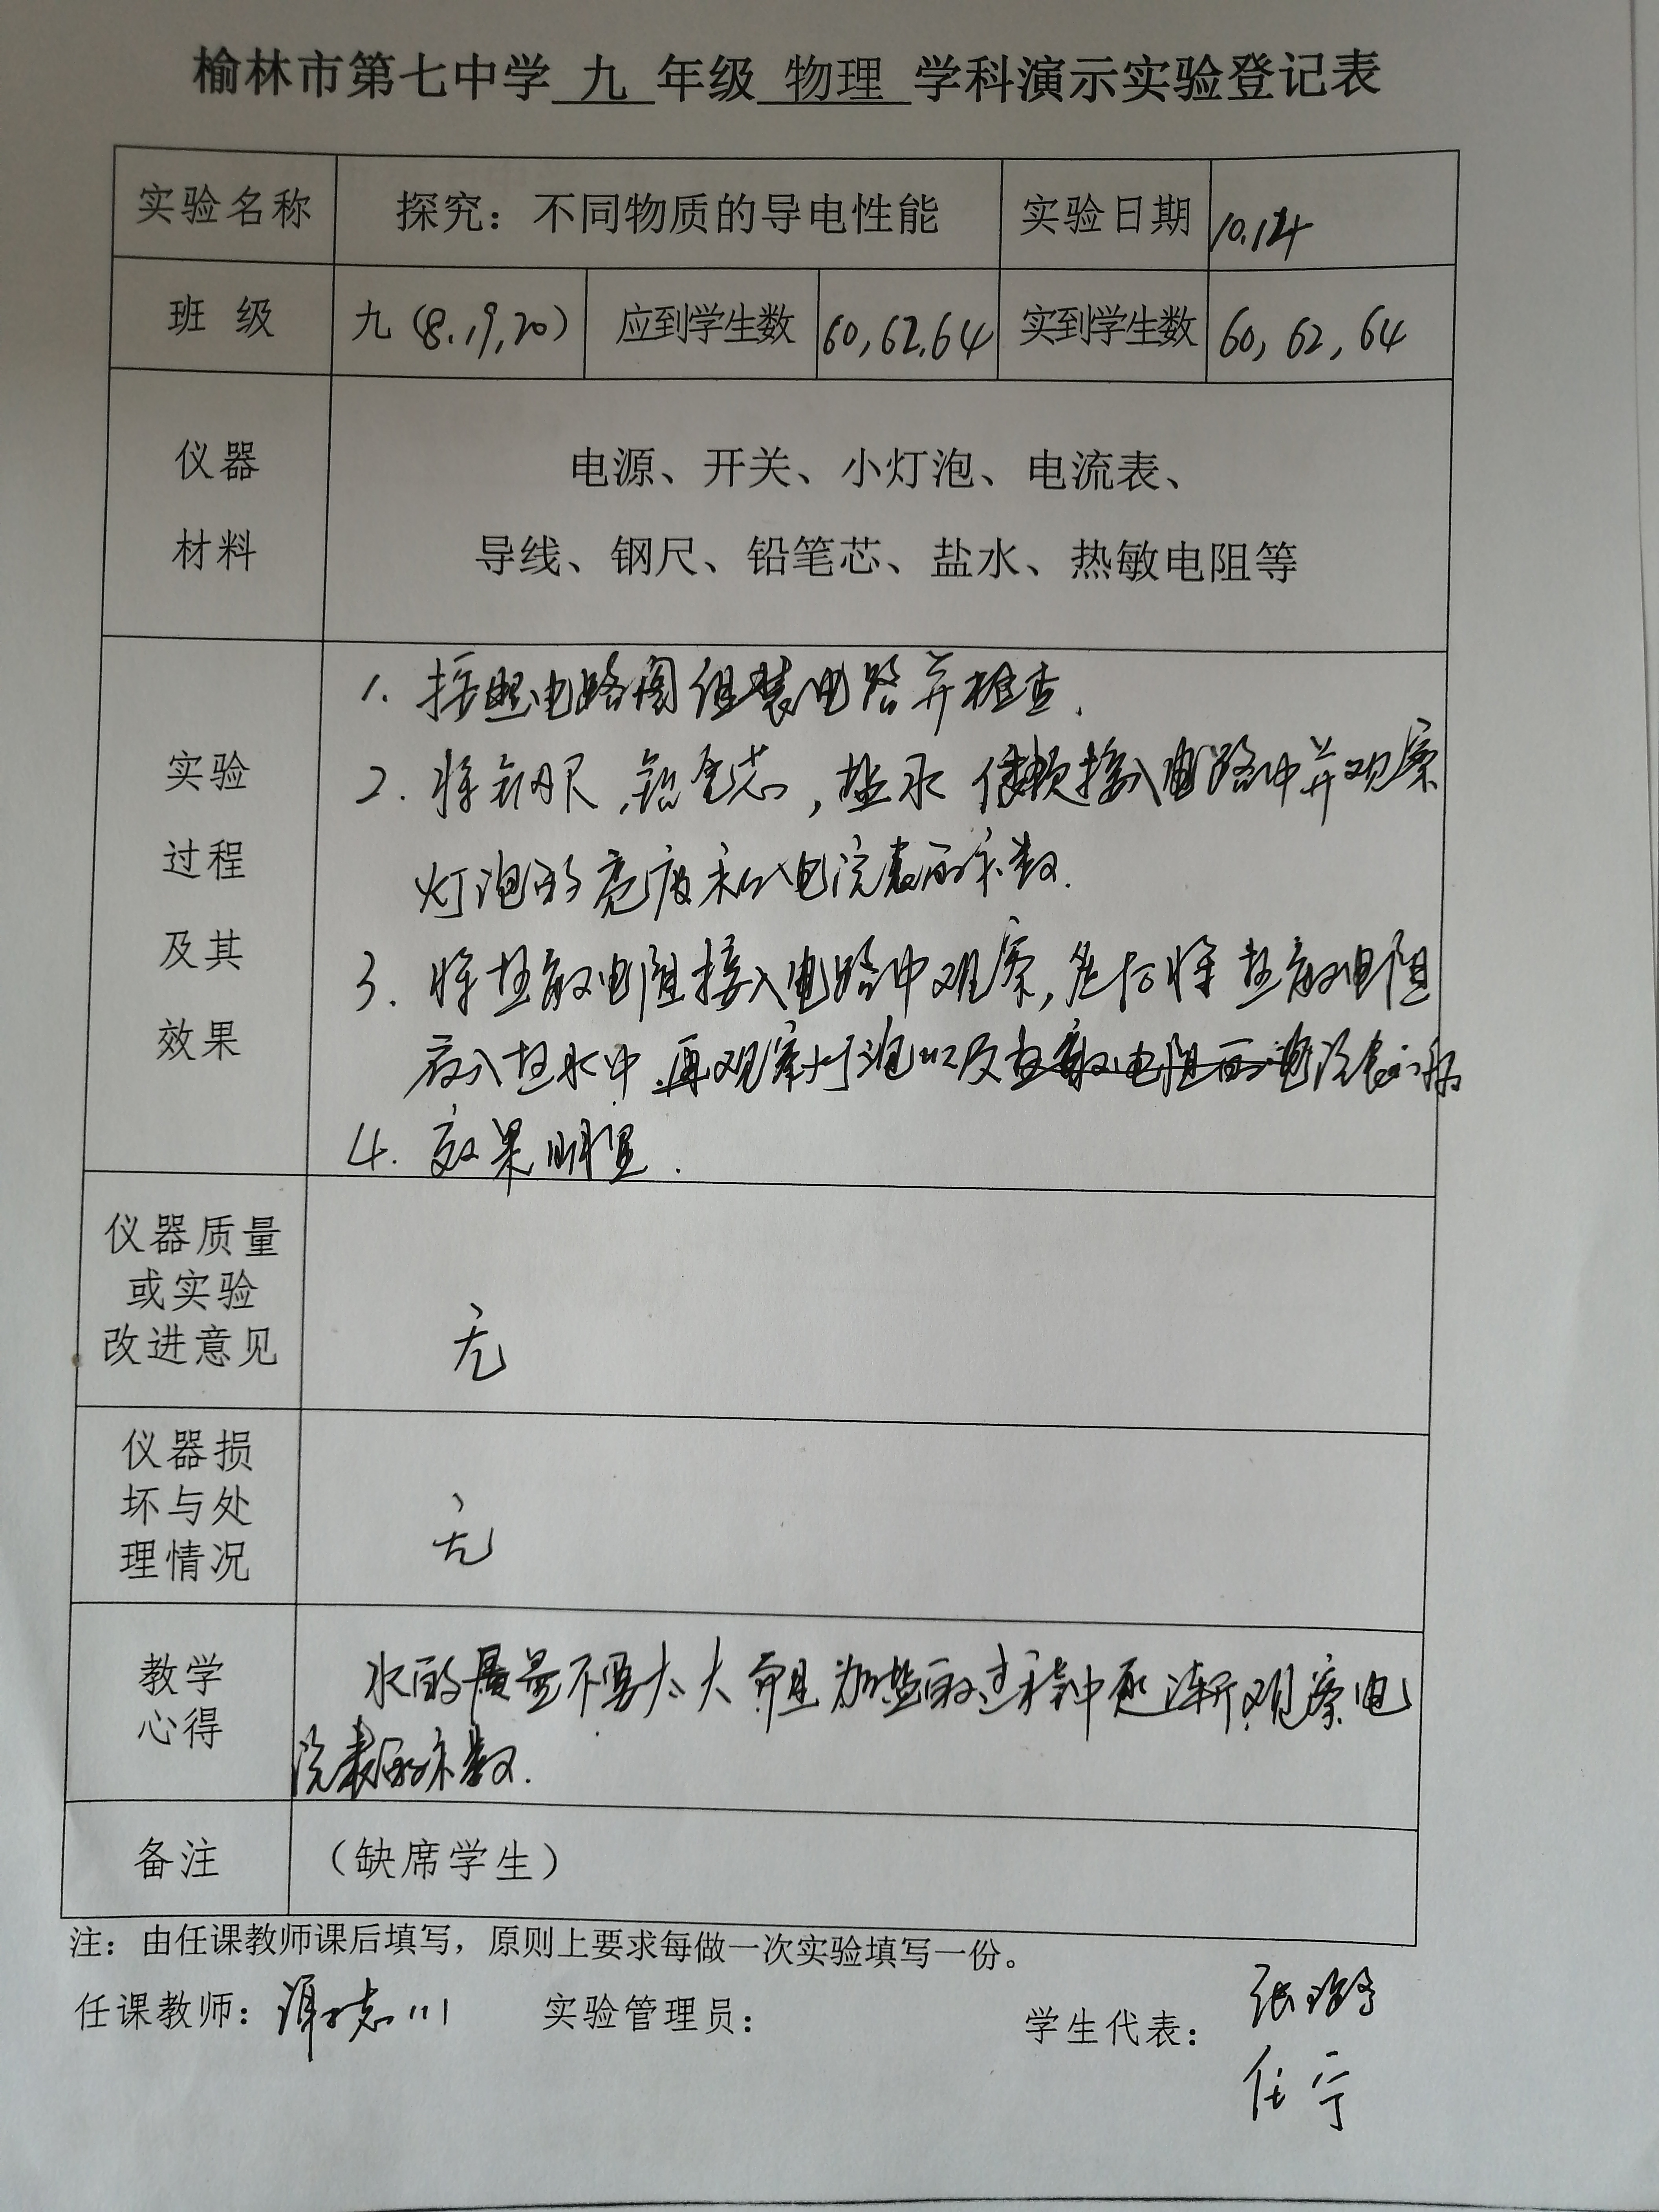 榆林市第七中学 九 年级 物理 学科演示实验登记表
实验名称 探究：不同物质的导电性能 实验日期 10.14
班 级 九（8.19,20） 应到学生数 60,62,64 实到学生数 60, 62, 64
仪器 电源、开关、小灯泡、电流表、
材料 导线、钢尺、铅笔芯、盐水、热敏电阻等
1. 按照电路图组装电路并检查.
实验 2. 将钢尺,铅笔芯,盐水 依次接入电路中并观察
过程 灯泡的亮度和电流表的示数.
及其 3. 将热敏电阻接入电路中观察,然后将热敏电阻
效果 放入热水中再观察灯泡以及电流表的
4. 效果明显.
仪器质量
或实验
改进意见 无
仪器损
坏与处
理情况 无
教学 水的质量不要太大而且加盐的过程中逐渐观察电
心得 流表的示数.
备注 （缺席学生）
注：由任课教师课后填写，原则上要求每做一次实验填写一份。
任课教师： 实验管理员： 学生代表：
任宁